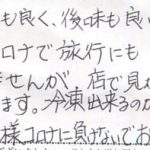 も良く、後味も良い
ロナで旅行にも
せんが、店で見か
ます。冷凍出来るのが
様コロナに負けないでお